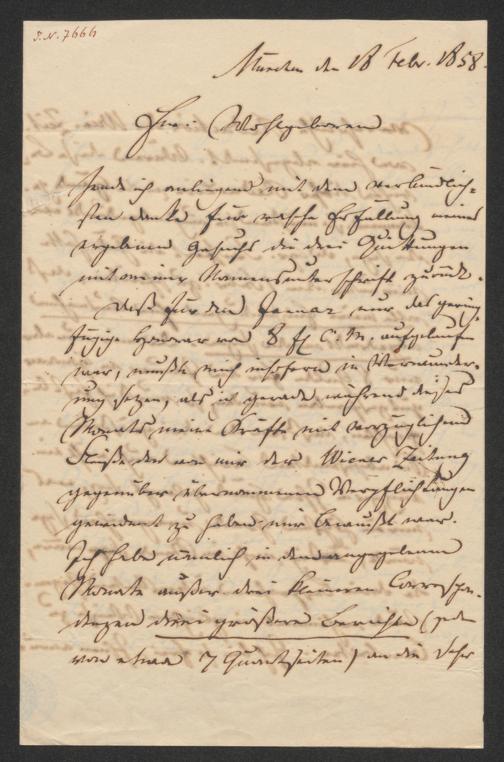 I.N. 7666
München den 18 Febr. 1858.
Euer Wohlgeboren
sende ich anliegend mit dem verbindlich-
sten Danke für rasche Erfüllung meines
ergebenen Gesuchs die drei Quittungen
mit meiner Namensunterschrift zurück.
Daß für den Januar nur das gering-
fügige Honorar von 8 fl C.M. aufgelaufen
war, mußte mich insofern in Verwunder-
ung setzen, als ich gerade während dieses
Monats meine Kräfte mit vorzüglichem
Fleiße den von mir der Wiener Zeitung
gegenüber übernommenen Verpflichtungen
gewidmet zu haben mir bewußt war.
Ich habe nämlich in dem angegebenen
Monate außer drei kleineren Correspon-
denzen drei größere Berichte (jeden
von etwa 7 Quartseiten) an die